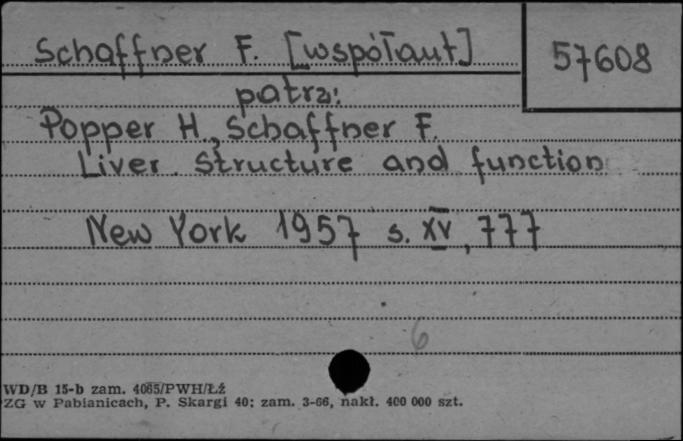 Schaffner F. [współaut]
57608
patrz:
Popper H., Schaffner F.
Liver. Structure and function
New York 1957 s. XV, 777
6
WD/B 15-b zam. 4085/PWH/Łż
ZG w Pabianicach, P. Skargi 40; zam. 3-66, nakł. 400 000 szt.